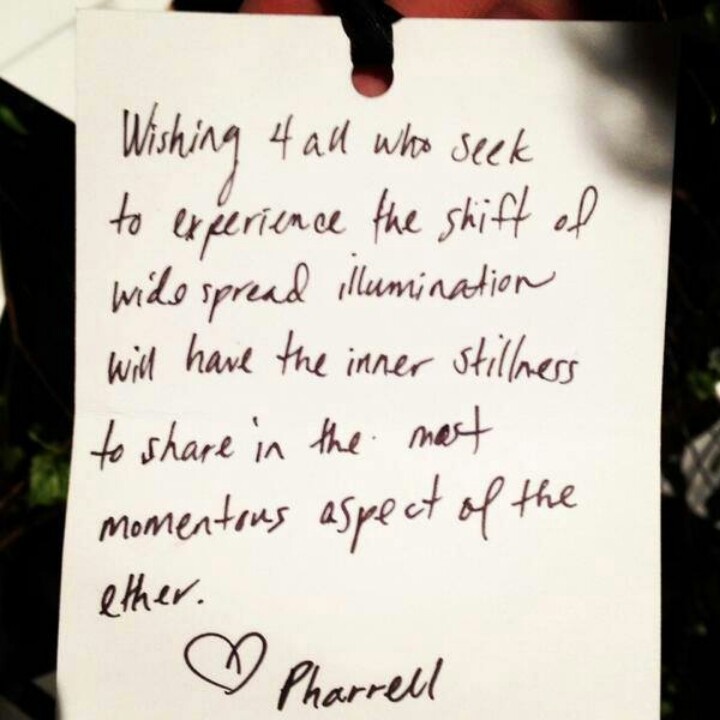 Wishing 4 all who seek
to experience the shift of
wide spread illumination
will have the inner stillness
to share in the most
momentous aspect of the
ether.
Pharrell